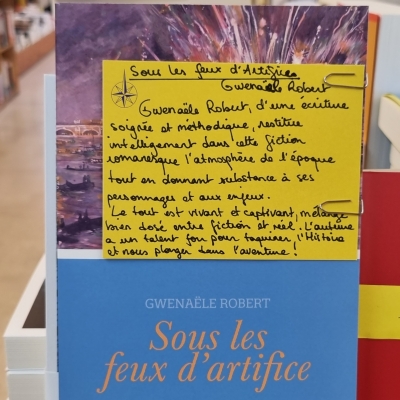 Sous les feux d'Artifice
Gwenaële Robert
Gwenaële Robert, d'une écriture
soignée et méthodique, restitue
intelligement dans cette fiction
romanesque l'atmosphère de l'époque
tout en donnant substance à ses
personnages et aux enjeux.
Le tout est vivant et captivant, mélange
bien dosé entre fiction et réel. L'auteure
a un talent fou pour taquiner l'Histoire
et nous plonger dans l'aventure !
GWENAËLE ROBERT
Sous les
feux d'artifice